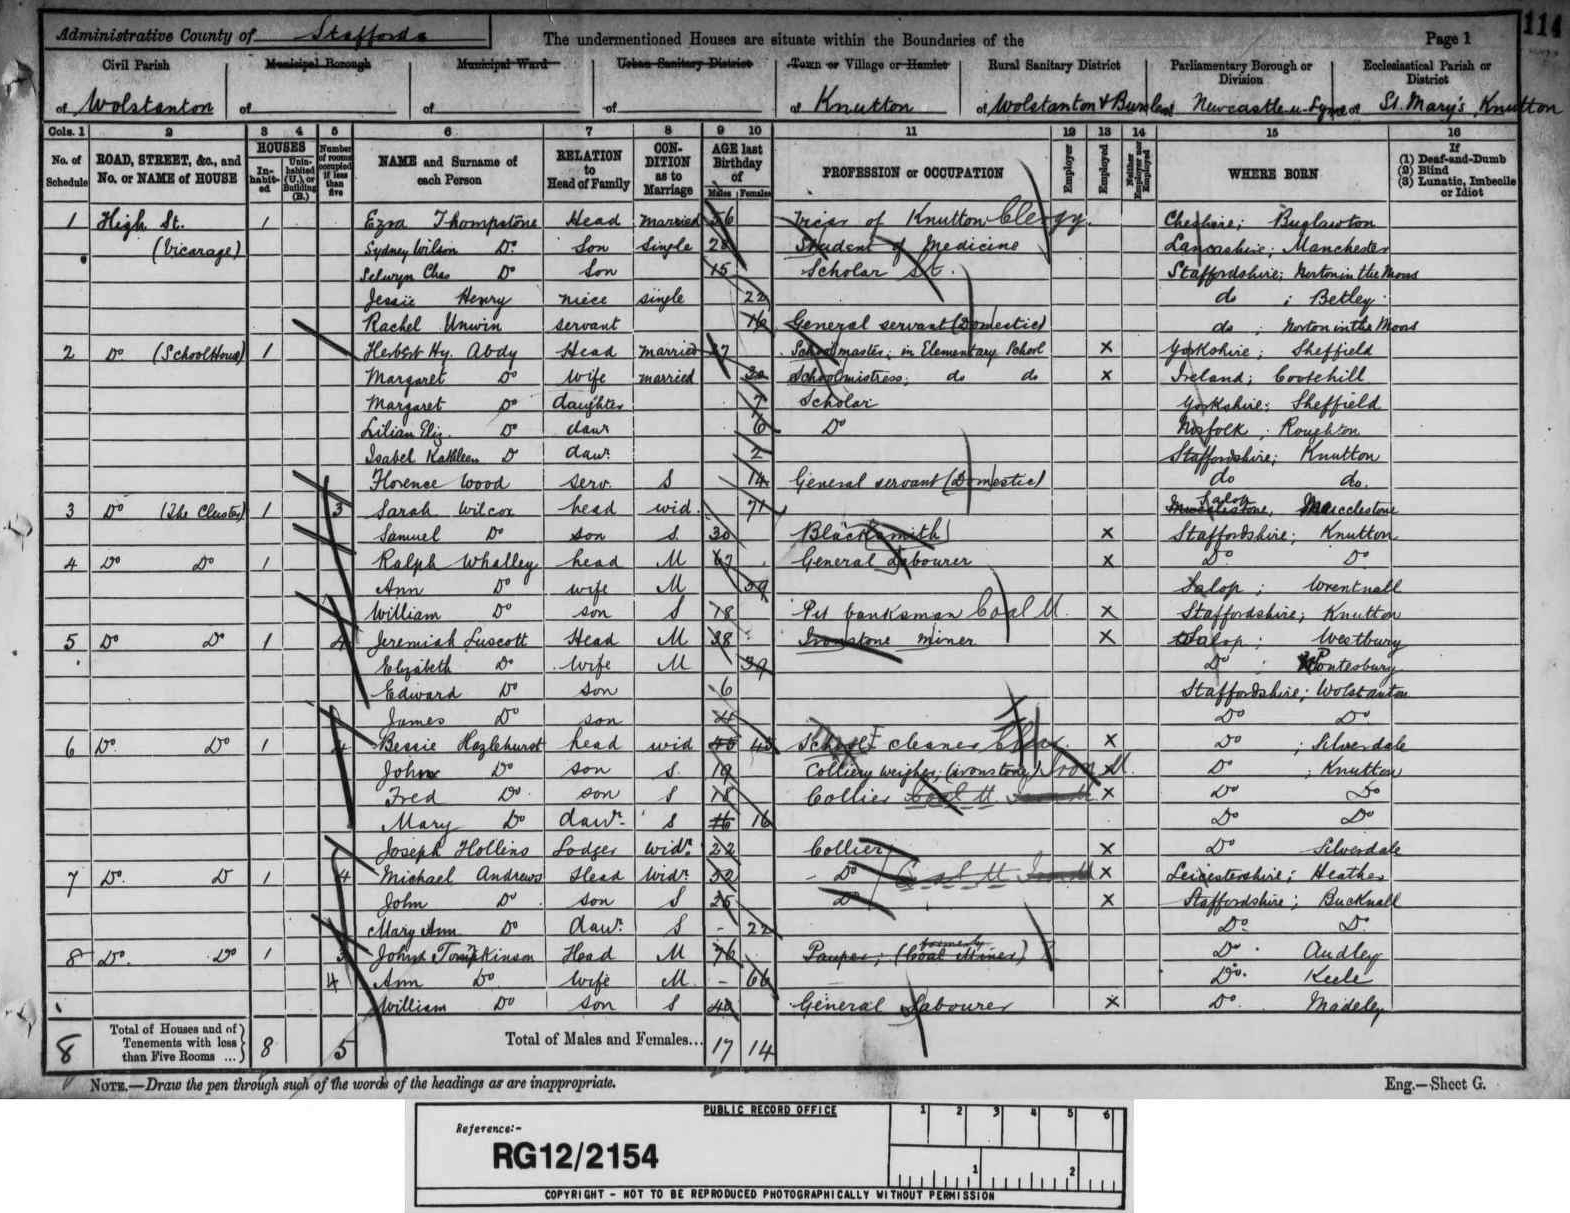 114
Administrative County of Staffords
The undermentioned Houses are situate within the Boundaries of the
Page 1
Civil Parish of Wolstanton
Municipal Borough of
Municipal Ward of
Urban Sanitary District of
Town or Village or Hamlet of Knutton
Rural Sanitary District of Wolstanton & Burslem
Parliamentary Borough or Division of Newcastle-u-Lyme
Ecclesiastical Parish or District of St. Mary's, Knutton
Cols. 1 2 3 4 5 6 7 8 9 10 11 12 13 14 15 16
No. of Schedule
ROAD, STREET, &c., and No. or NAME of HOUSE
HOUSES
Inhabited
Uninhabited (U.), or Building (B.)
Number of rooms occupied if less than five
NAME and Surname of each Person
RELATION to Head of Family
CONDITION as to Marriage
AGE last Birthday of
Males Females
PROFESSION or OCCUPATION
Employer
Employed
Neither Employer nor Employed
WHERE BORN
If (1) Deaf-and-Dumb (2) Blind (3) Lunatic, Imbecile or Idiot
1 High St. 1 Ezra Thompstone Head Married 56 Vicar of Knutton Clergy Cheshire; Buglawton
(Vicarage) Sydney Wilson Do Son Single 28 Student of Medicine Lancashire; Manchester
Selwyn Chas Do Son 15 Scholar St. Staffordshire; Norton in the Moors
Jessie Henry niece single 22 do ; Betley
Rachel Unwin servant 16 General servant (Domestic) do ; Norton in the Moors
2 Do (School House) 1 Herbert Hy. Abdy Head married 37 Schoolmaster; in Elementary School X Yorkshire; Sheffield
Margaret Do Wife married 30 Schoolmistress; do do X Ireland; Cootehill
Margaret Do daughter 7 Scholar Yorkshire; Sheffield
Lilian Eliz. Do daur 6 Do Norfolk; Roughton
Isabel Kathleen D daur. 2 Staffordshire; Knutton
Florence Wood serv. S 14 General servant (Domestic) do do.
3 Do (The Cluster) 1 3 Sarah Wilcox head wid. 71 Salop Maecclestone
Samuel Do son S 30 Blacksmith X Staffordshire; Knutton
4 Do Do 1 Ralph Whalley head M 67 General Labourer X Do Do
Ann Do wife M 59 Salop; Wrentnall
William Do son S 18 Pit banksman Coal M. X Staffordshire; Knutton
5 Do Do 1 4 Jeremiah Luscott Head M 38 Ironstone miner X Salop; Westbury
Elizabeth Do Wife M 39 Do ; Pontesbury
Edward Do son 6 Staffordshire; Wolstanton
James Do son 4 Do Do
6 Do. Do 1 4 Bessie Hazlehurst head wid 45 45 School cleaner X Do ; Silverdale
John Do son S. 19 Colliery weigher; (ironstone) Iron M. X Do ; Knutton
Fred Do son S 18 Collier Coal M X Do Do
Mary Do daur. S 16 16 Do Do
Joseph Hollins Lodger widr. 22 Collier X Do Silverdale
7 Do. D 1 4 Michael Andrews Head widr. 52 Do Coal M X Leicestershire; Heather
John Do son S 25 Do X Staffordshire; Bucknall
Mary Ann Do daur. S - 22 Do. D.
8 Do. Do 1 3 John Tompkinson Head M 76 Pauper; (formerly Coal Miner) Do Audley
4 Ann Do. wife M. - 66 Do. Keele
William Do son S 40 General Labourer X Do Madeley
8 Total of Houses and of Tenements with less than Five Rooms ... 8 5 Total of Males and Females... 17 14
NOTE.—Draw the pen through such of the words of the headings as are inappropriate.
Eng.—Sheet G.
PUBLIC RECORD OFFICE
1 2 3 4 5 6
Reference:-
RG12/2154
1 2
COPYRIGHT - NOT TO BE REPRODUCED PHOTOGRAPHICALLY WITHOUT PERMISSION